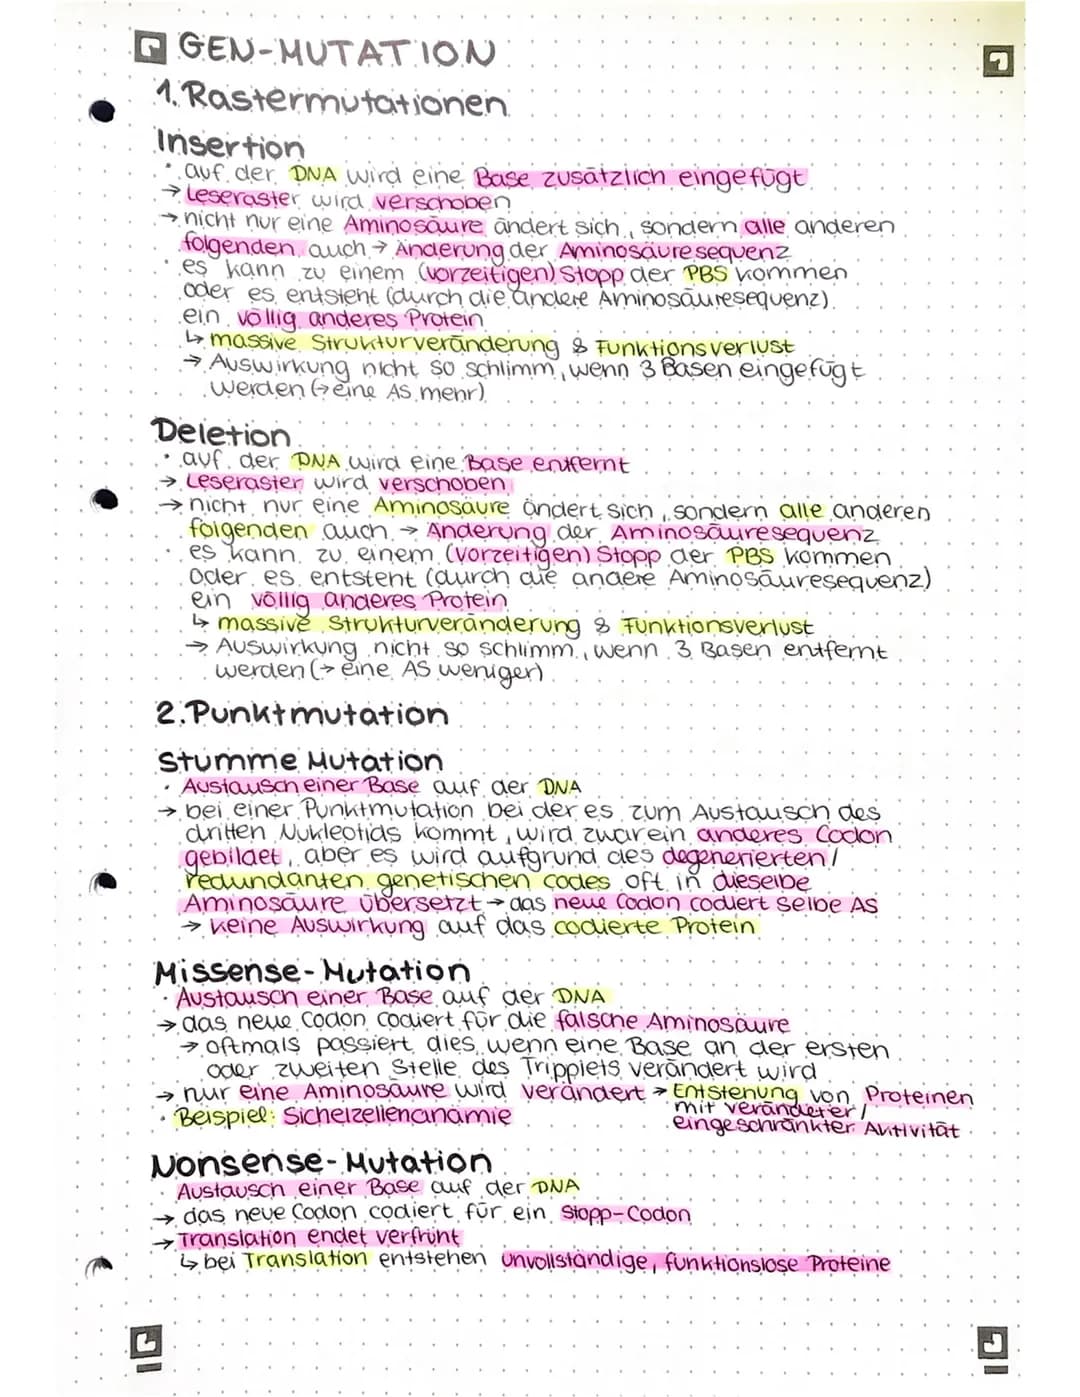 GEN-MUTATION
1. Rastermutationen
Insertion
• auf der DNA wird eine Base zusätzlich eingefügt
→ Leseraster wird verschoben
→ nicht nur eine Aminosäure ändert sich, sondern alle anderen
folgenden auch → Änderung der Aminosäuresequenz
• es kann zu einem (vorzeitigen) Stopp der PBS kommen
oder es entsteht (durch die andere Aminosäuresequenz)
ein völlig anderes Protein
↳ massive Strukturveränderung & Funktionsverlust
→ Auswirkung nicht so schlimm, wenn 3 Basen eingefügt
werden (→ eine AS mehr)
Deletion
• auf der DNA wird eine Base entfernt
→ Leseraster wird verschoben
→ nicht nur eine Aminosäure ändert sich, sondern alle anderen
folgenden auch → Änderung der Aminosäuresequenz
• es kann zu einem (vorzeitigen) Stopp der PBS kommen
oder es entsteht (durch die andere Aminosäuresequenz)
ein völlig anderes Protein
↳ massive Strukturveränderung & Funktionsverlust
→ Auswirkung nicht so schlimm, wenn 3 Basen entfernt
werden (→ eine AS weniger)
2. Punktmutation
Stumme Mutation
• Austausch einer Base auf der DNA
→ bei einer Punktmutation bei der es zum Austausch des
dritten Nukleotids kommt, wird zwar ein anderes Codon
gebildet, aber es wird aufgrund des degenerierten /
redundanten genetischen codes oft in dieselbe
Aminosäure übersetzt → das neue Codon codiert selbe AS
→ keine Auswirkung auf das codierte Protein
Missense-Mutation
• Austausch einer Base auf der DNA
→ das neue Codon codiert für die falsche Aminosäure
→ oftmals passiert dies, wenn eine Base an der ersten
oder zweiten Stelle des Tripplets verändert wird
→ nur eine Aminosäure wird verändert → Entstehung von Proteinen
mit veränderter /
eingeschränkter Aktivität
• Beispiel: Sichelzellenanämie
Nonsense-Mutation
• Austausch einer Base auf der DNA
→ das neue Codon codiert für ein Stopp-Codon
→ Translation endet verfrüht
↳ bei Translation entstehen unvollständige, funktionslose Proteine